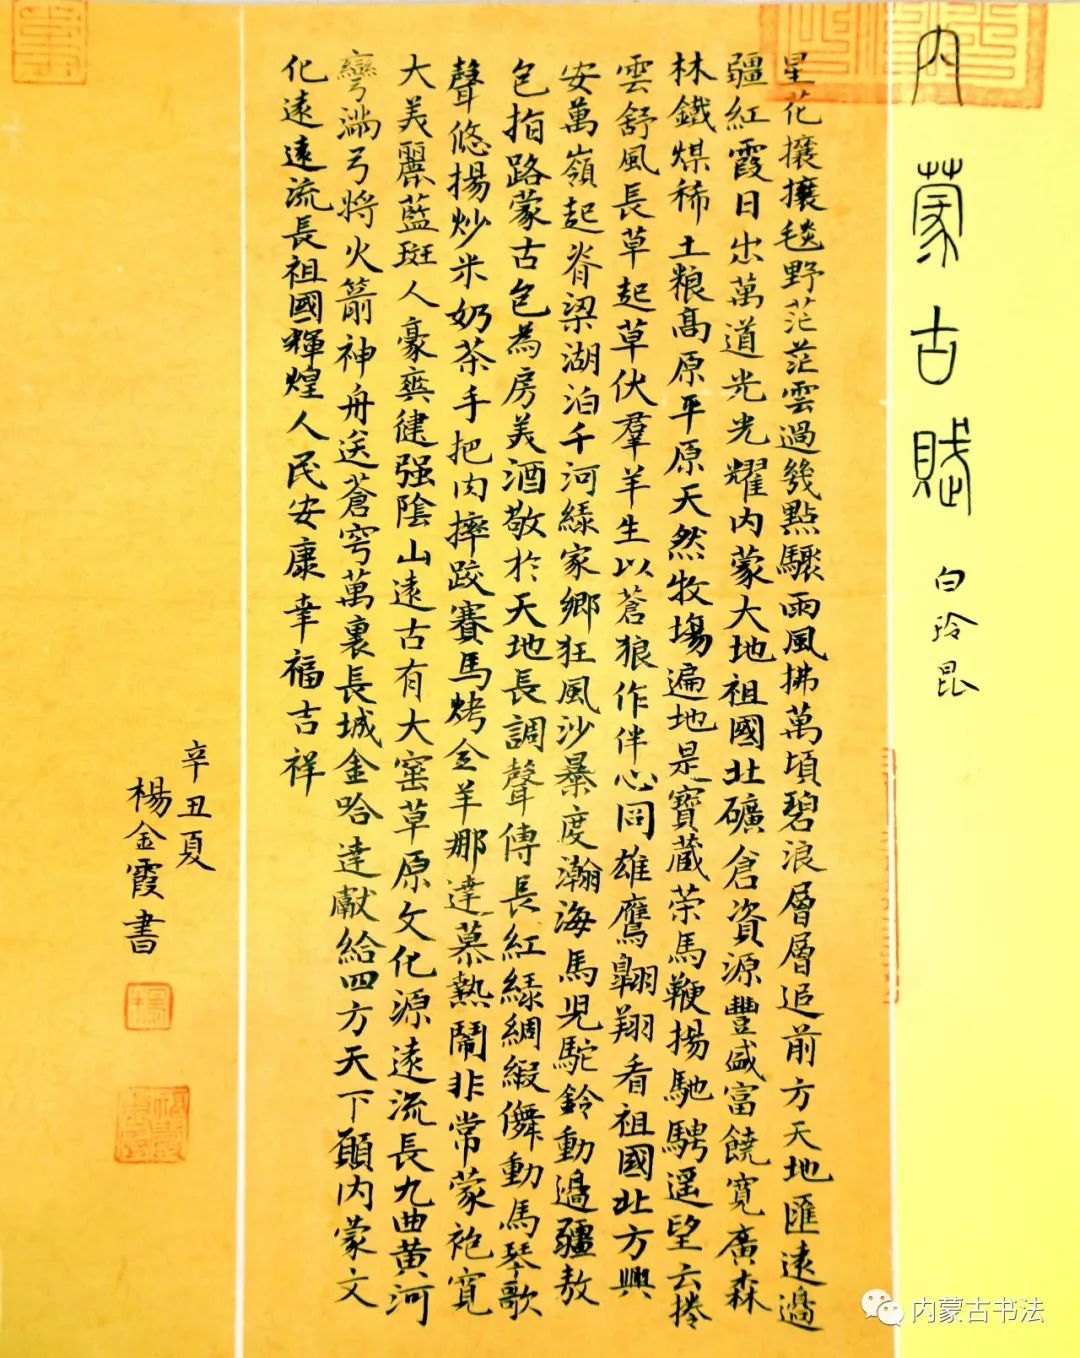 内蒙古賦
白玲昆
星花攘攘毯野茫茫雲過幾點驟雨風拂萬頃碧浪層層追前方天地匯遠邊
疆紅霞日出萬道光光耀內蒙大地祖國北礦倉資源豐盛富饒寬廣森
林鐵煤稀土粮高原平原天然牧場遍地是寶藏荣馬鞭揚馳騁遥望云捲
雲舒風長草起草伏羣羊生以蒼狼作伴心同雄鷹翱翔看祖國北方興
安萬嶺起脊梁湖泊千河綠家鄉狂風沙暴度瀚海馬児駝鈴動邊疆敖
包指路蒙古包為房美酒敬於天地長調聲傳長紅綠綢緞儛動馬琴歌
聲悠揚炒米奶茶手把肉摔跤賽馬烤全羊那達慕熱鬧非常蒙袍寬
大美麗藍斑人豪爽健强陰山遠古有大窑草原文化源遠流長九曲黄河
彎滿弓將火箭神舟送蒼穹萬裏長城金哈達獻給四方天下願内蒙文
化遠遠流長祖國輝煌人民安康幸福吉祥
辛丑夏
楊金霞書
内蒙古书法